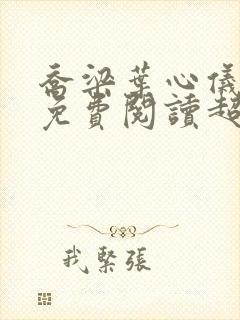 喬梁葉心儀
免費閱讀超
我緊張